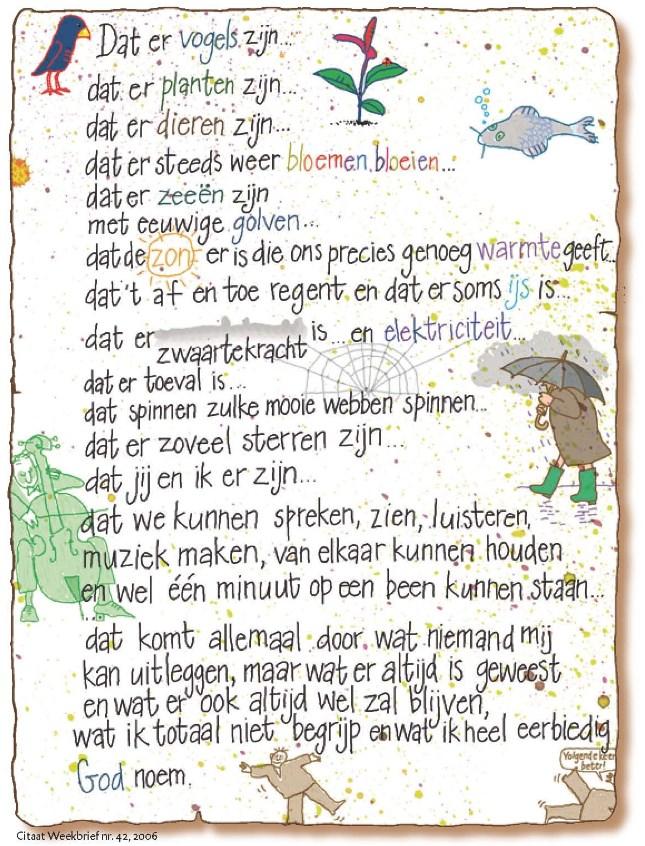 Dat er vogels zijn...
dat er planten zijn...
dat er dieren zijn...
dat er steeds weer bloemen bloeien...
dat er zeeën zijn
met eeuwige golven...
dat de zon er is die ons precies genoeg warmte geeft..
dat 't af en toe regent en dat er soms ijs is...
dat er zwaartekracht is...en elektriciteit...
dat er toeval is...
dat spinnen zulke mooie webben spinnen...
dat er zoveel sterren zijn...
dat jij en ik er zijn...
dat we kunnen spreken, zien, luisteren,
muziek maken, van elkaar kunnen houden
en wel één minuut op een been kunnen staan...
...
dat komt allemaal door wat niemand mij
kan uitleggen, maar wat er altijd is geweest
en wat er ook altijd wel zal blijven,
wat ik totaal niet begrijp en wat ik heel eerbiedig
God noem.
Volgende keer
beter!
Citaat Weekbrief nr. 42, 2006